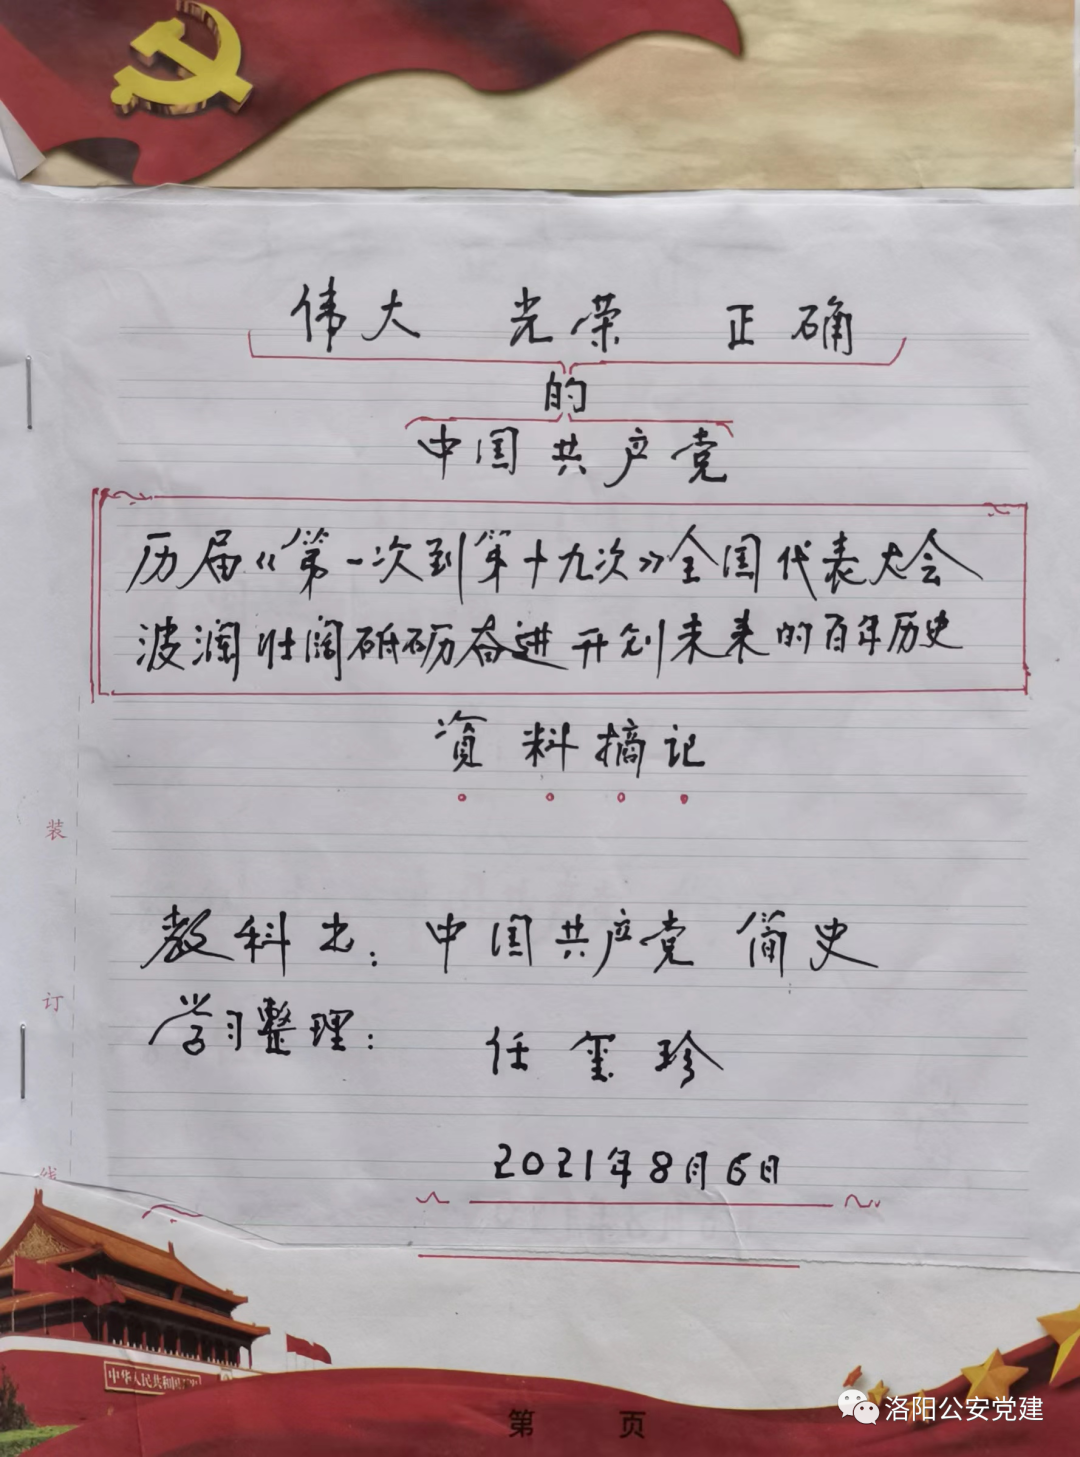 伟大 光荣 正确
的
中国共产党
历届《第一次到第十九次》全国代表大会
波澜壮阔砥砺奋进开创未来的百年历史
资料摘记
教科书：中国共产党 简史
学习整理： 任玺珍
2021年8月6日
装
订
线
中华人民共和国
第 页
洛阳公安党建